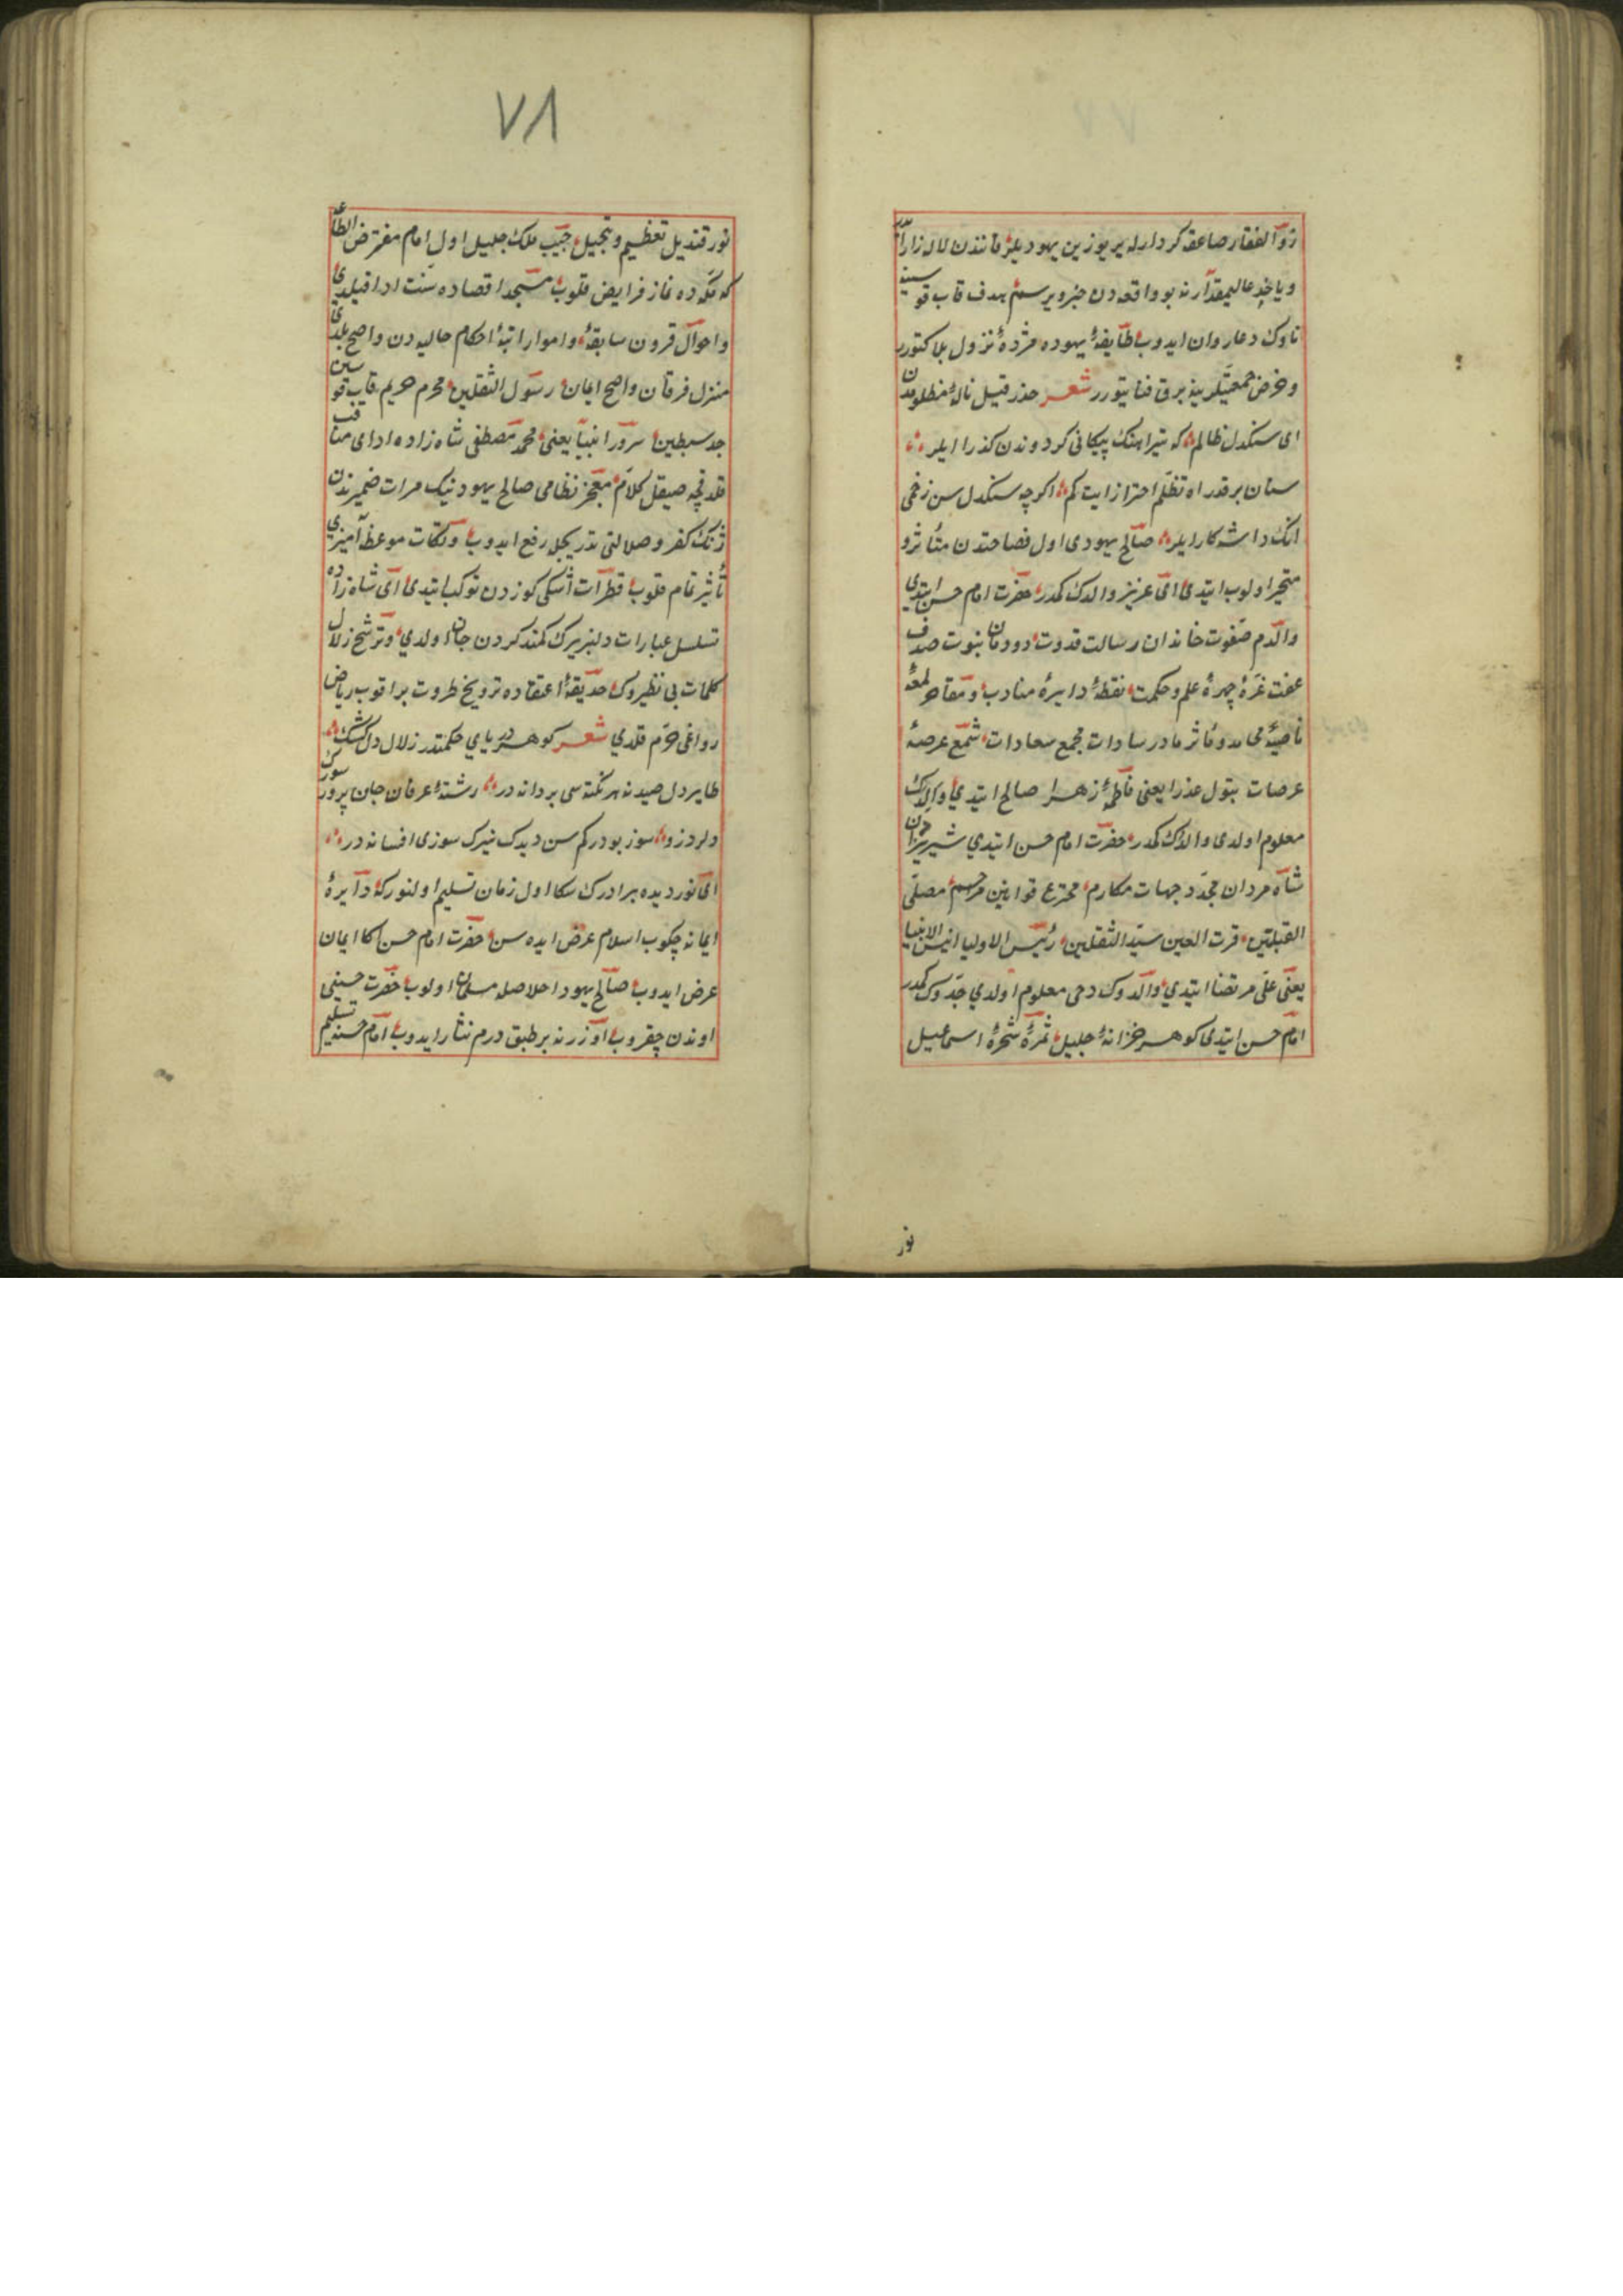 ذوالفقار صاعقه كردارله ير يوزين يهوديلر قانندن لاله زار ايدر
ويا جد عاليمقدارنه بو واقعه دن خبر ويرسم هدف قاب قوسينه
ناوك دعا روان ايدوب طايفه يهوده مژده نزول بلا كتورر
وخرمن جمعيتلرينه برق فنا يتورر شعر حذر قيل ناله مظلومدن
اى سنكدل ظالم كه تير اهنك پيكانى كردوندن كذر ايلر
سنان برقدر اه تظلم احتراز ايت كم اكرچه سنكدل سن زخمى
انك داشه كار ايلر صالح يهودى اول فصاحتدن متأثر و
متحير اولوب ايتدى اى عزيز والدك كمدر حضرت امام حسن ايتدى
والدم صفوت خاندان رسالت قدوت دودمان نبوت صدف
عفت غره چهره علم وحكمت نقطه دايره مناقب ومفاخر لمعه
ناصيه محامد ومأثر مادر سادات مجمع سعادات شمع عرصه
عرصات بتول عذرا يعنى فاطمه زهرا صالح ايتدي والدك
معلوم اولدى والدك كمدر حضرت امام حسن ايتدي شير يزدان
شاه مردان مجدد جهات مكارم مخترع قوانين مراسم مصلى
القبلتين قرت العين سيد الثقلين رئيس الاوليا انيس الانبيا
يعنى على مرتضا ايتدي والدوك دخى معلوم اولدي جدوك كمدر
امام حسن ايتدى كوهر خزانه جليل ثمره شجره اسماعيل
نور
٧٨
نور قنديل تعظيم وتبجيل حبيب ملك جليل اول امام مفترض الطاعه
كه مكه ده نماز فرايض قلوب مسجد اقصاده سنت ادا قيلدى
واحوال قرون سابقه وامور اتيه احكام حاليه دن واضح بلدى
منزل فرقان واضح ايمان رسول الثقلين محرم حريم قاب قوسين
جد سبطين سرور انبيا يعنى محمد مصطفى شاه زاده اداى مناقب
قلدقچه صيقل كلام معجز نظامى صالح يهودنيك مرات ضميرندن
ژنك كفر وضلالتى تدريجله رفع ايدوب ونكات موعظه آميزى
تأثير تمام قلوب قطرات اشكى كوزدن توكب ايتدى اى شاه زاده
تسلسل عبارات دلپزيرك كمند كردن جان اولدي وترشح زلال
كلمات بى نظيروك حديقه اعتقاده ترويح طروت براقوب رياض
رواغى خرم قلدي شعر كوهر درياي حكمتدر زلال دلكشك
طاير دل صيدنه هر نكته سى بر دانه در رشته عرفان جان پرور سوزك
دلدوز و سوز بودركم سن ديدك غيرك سوزى افسانه در
اى نور ديده برادرك سكا اول زمان تسليم اولنور كه دايره
ايمانه چكوب اسلام عرض ايده سن حضرت امام حسن اكا ايمان
عرض ايدوب صالح يهود اخلاصله مسلمان اولوب حضرت حسينى
اوندن چقروب اوزرنه بر طبق درم نثار ايدوب امام حسنه تسليم